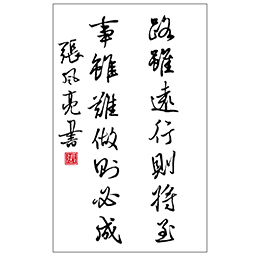 路雖遠行則將至
事雖難做則必成
張風亮書